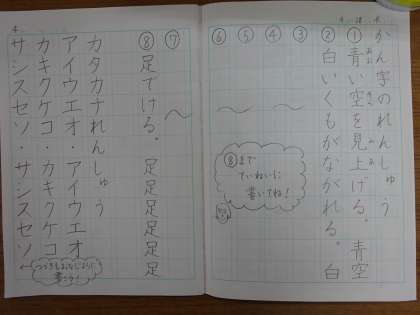 かん字のれんしゅう
①青い空を見上げる。 青空
②白いくもがながれる。 白
③
④
⑤
⑥
⑧まで
ていねいに
書いてね！
⑦
⑧足でける。 足足足足足足
カタカナれんしゅう
アイウエオ・アイウエオ
カキクケコ・カキクケコ
サシスセソ・サシスセソ
つづきもおなじように
書こう！